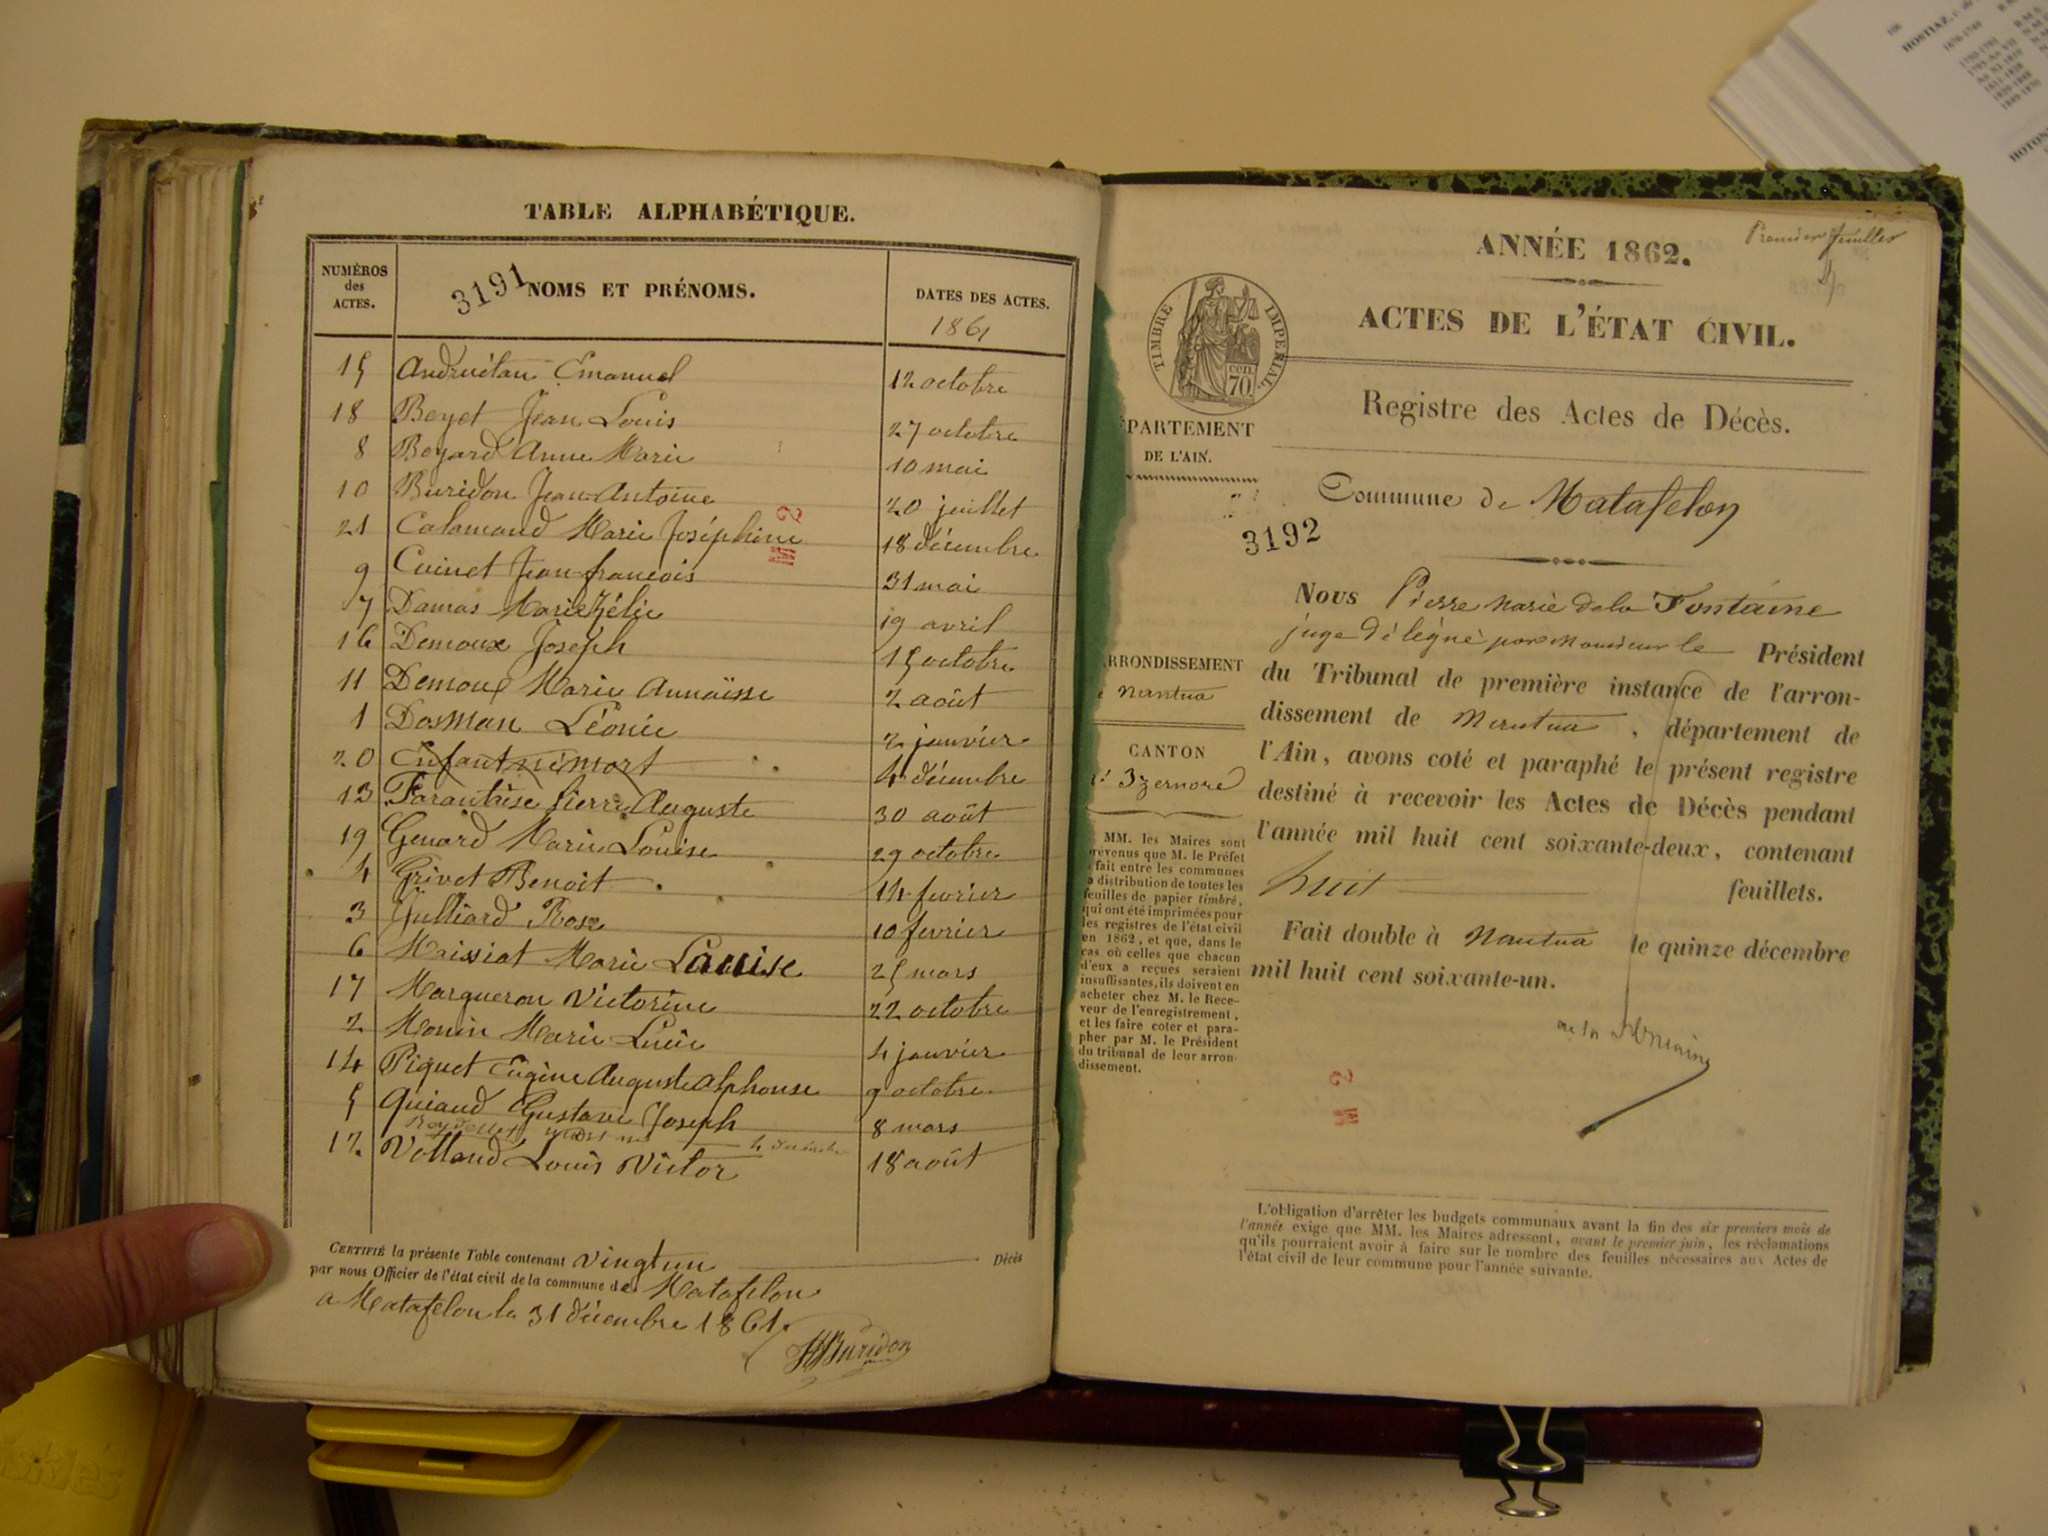 TABLE ALPHABÉTIQUE.
NUMÉROS
des
ACTES.
3191
NOMS ET PRÉNOMS.
DATES DES ACTES.
1861
15 Andruétan Emanuel 12 octobre
18 Beyet Jean Louis 27 octobre
8 Boyard Anne Marie 10 mai
10 Buridon Jean Antoine 20 juillet
21 Calamand Marie Joséphine 18 décembre
9 Cuinet Jean françois 31 mai
7 Damas Marie Zélie 19 avril
16 Demoux Joseph 15 octobre
11 Demoux Marie Annaïsse 2 août
1 Dosman Léonie 2 janvier
20 Enfant né mort 4 décembre
13 Farantèse Pierre Auguste 30 août
19 Genard Marie Louise 29 octobre
4 Grivet Benoit 14 fevrier
3 Julliard Rose 10 fevrier
6 Maissiat Marie Louise 25 mars
17 Margueron Victorine 22 octobre
2 Monin Marie Lucie 4 janvier
14 Piquet Eugène Auguste Alphonse 9 octobre
5 Quiaud Gustave Joseph 8 mars
mort né
12 Volland Louis Victor 18 août
CERTIFIÉ la présente Table contenant vingtun Décès
par nous Officier de l'état civil de la commune de Matafelon
a Matafelon le 31 décembre 1861.
Buridon
Premier feuillet
ANNÉE 1862.
ACTES DE L'ÉTAT CIVIL.
TIMBRE IMPERIAL
CEN.
70
Registre des Actes de Décès.
ÉPARTEMENT
DE L'AIN.
Commune de Matafelon
3192
Nous Pierre Marie dela Fontaine
juge délégué par Monsieur le Président
du Tribunal de première instance de l'arron-
dissement de Nantua, département de
l'Ain, avons coté et paraphé le présent registre
destiné à recevoir les Actes de Décès pendant
l'année mil huit cent soixante-deux, contenant
huit feuillets.
Fait double à Nantua le quinze décembre
mil huit cent soixante-un.
RRONDISSEMENT
Nantua
CANTON
d'Izernore
MM. les Maires sont
prévenus que M. le Préfet
a fait entre les communes
a distribution de toutes les
feuilles de papier timbré,
qui ont été imprimées pour
les registres de l'état civil
en 1862, et que, dans le
cas où celles que chacun
d'eux a reçues seraient
insuffisantes, ils doivent en
acheter chez M. le Rece-
veur de l'enregistrement,
et les faire coter et para-
pher par M. le Président
du tribunal de leur arron-
dissement.
L'obligation d'arrêter les budgets communaux avant la fin des six premiers mois de
l'année exige que MM. les Maires adressent, avant le premier juin, les réclamations
qu'ils pourraient avoir à faire sur le nombre des feuilles nécessaires aux Actes de
l'état civil de leur commune pour l'année suivante.
HOSTIAZ